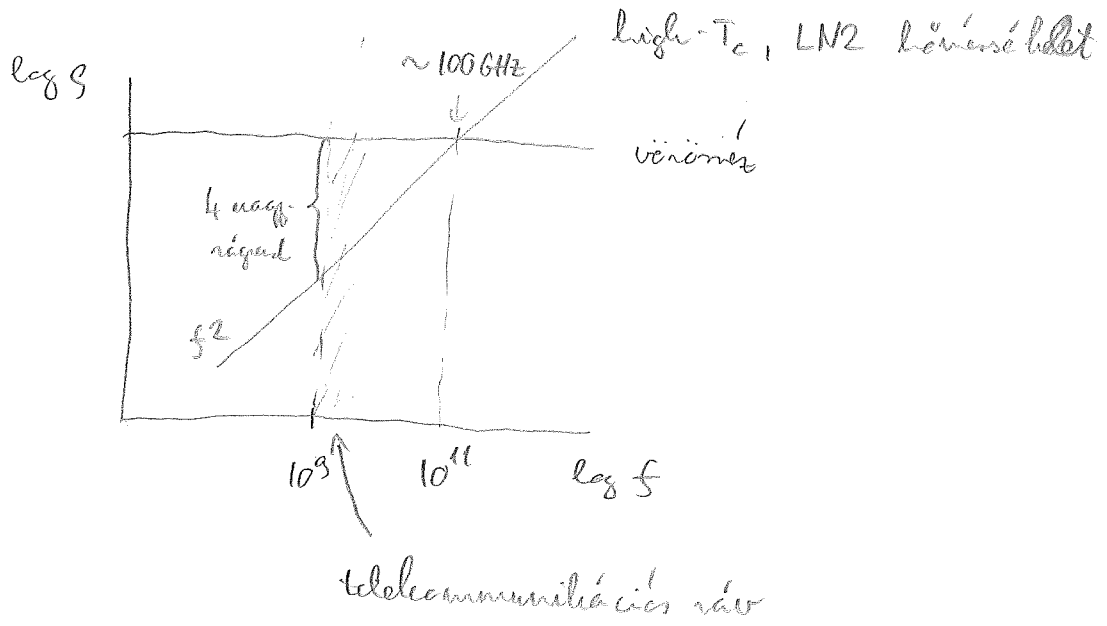 high-Tc, LN2 hőmérséklet
~100GHz
log ϱ
vörösréz
4 nagy-
ságrend
f²
10⁹
10¹¹
log f
telekommunikációs sáv